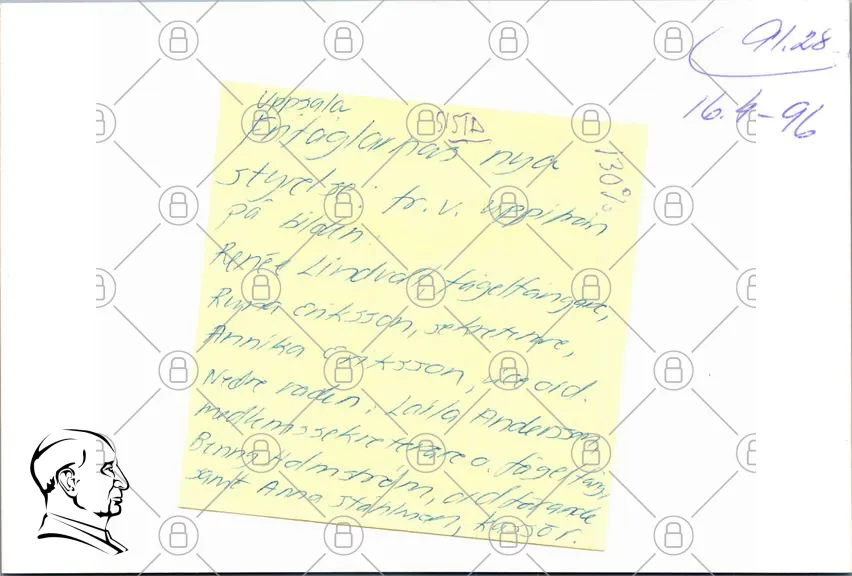 91.28
16.4-96
Uppsala
SISTA
Enfåglarnas nya
130%
styrelse: fr.v. uppifrån
på bilden:
Renée Lindvall, fågelfängare,
Eriksson, sekreterare,
Annika Eriksson, vice ord.
Nedre raden: Laila Andersson,
medlemssekreterare o. fågelfäng,
Benna Holmström, ordförande
samt Anna Ståhlman, kassör.